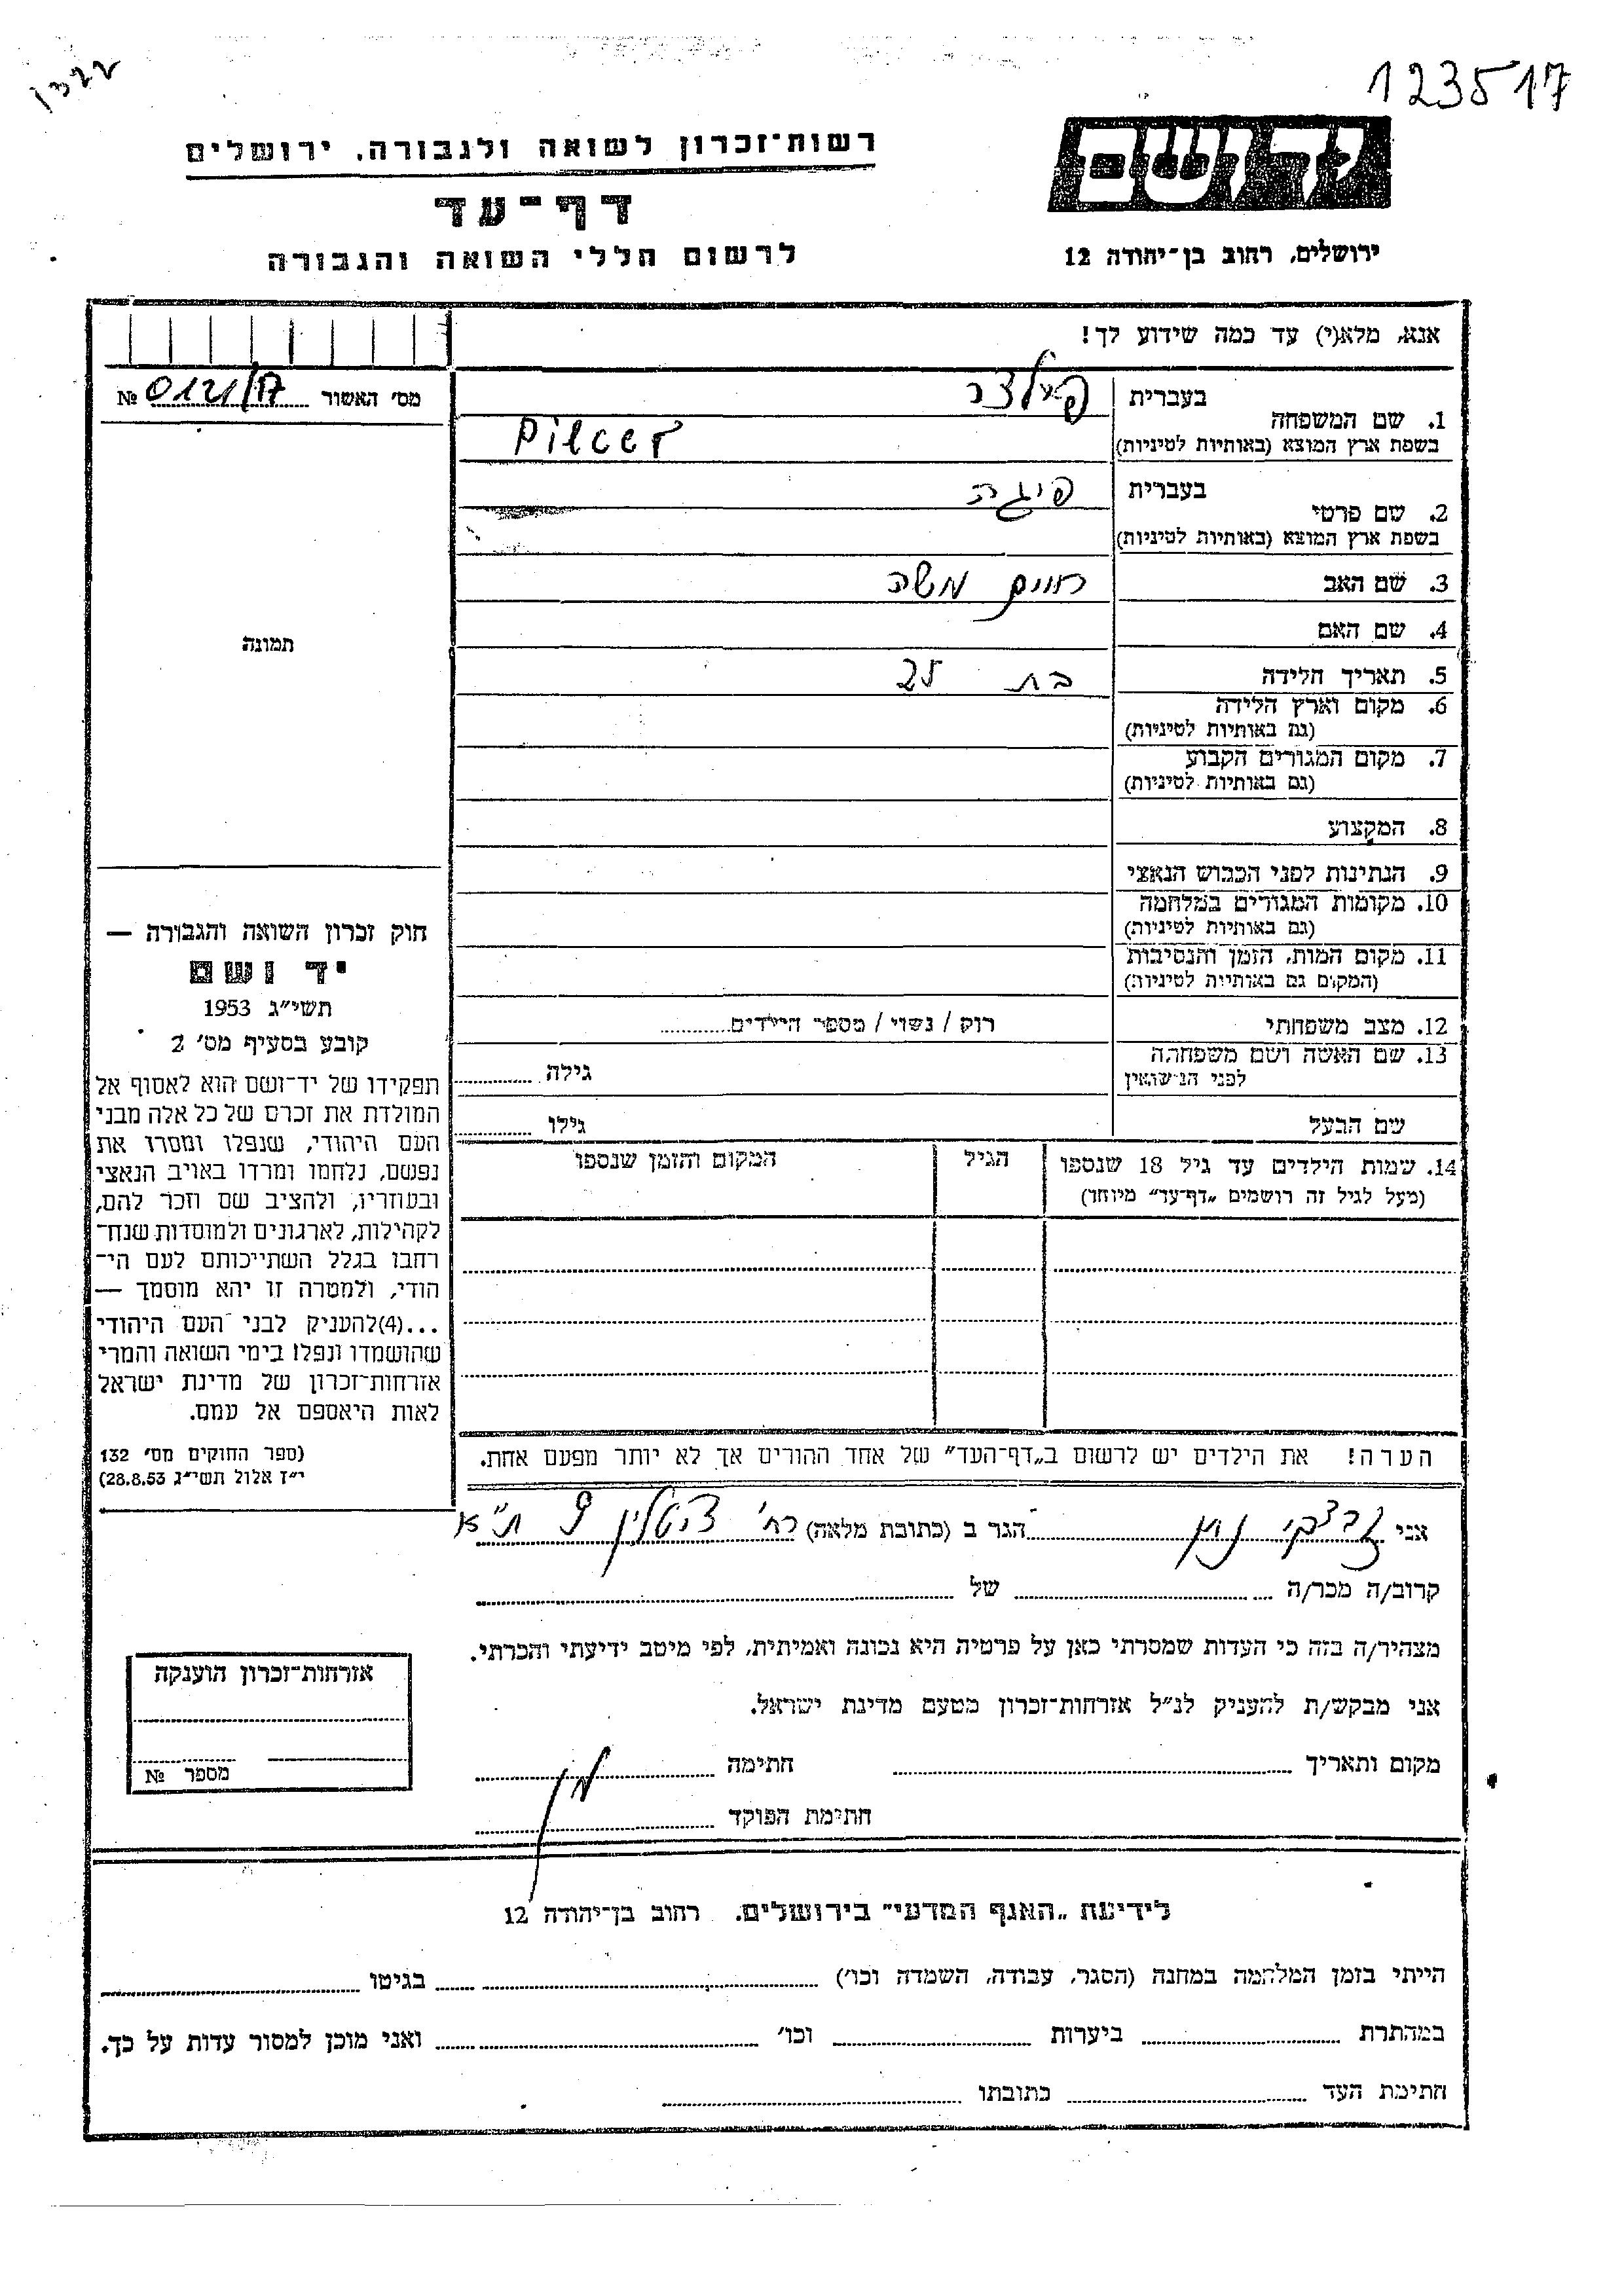 123517
יד ושם
רשות־זכרון לשואה ולגבורה, ירושלים
דף־עד
לרשום חללי השואה והגבורה
ירושלים, רחוב בן־יהודה 12
אנא, מלא(י) עד כמה שידוע לך!
מס' האשור № 0121/17
1. שם המשפחה
בעברית פילצר
בשפת ארץ המוצא (באותיות לטיניות) Pilcer
2. שם פרטי
בעברית פיגה
בשפת ארץ המוצא (באותיות לטיניות)
3. שם האב חיים משה
4. שם האם
5. תאריך הלידה בת 25
6. מקום וארץ הלידה
(גם באותיות לטיניות)
7. מקום המגורים הקבוע
(גם באותיות לטיניות)
8. המקצוע
9. הנתינות לפני הכבוש הנאצי
10. מקומות המגורים במלחמה
(גם באותיות לטיניות)
11. מקום המות, הזמן והנסיבות
(המקום גם באותיות לטיניות)
12. מצב משפחתי רוק / נשוי / מספר הילדים
13. שם האשה ושם משפחתה
לפני הנישואין גילה
שם הבעל גילו
14. שמות הילדים עד גיל 18 שנספו הגיל המקום והזמן שנספו
(מעל לגיל זה רושמים „דף־עד״ מיוחד)
הערה! את הילדים יש לרשום ב„דף־העד״ של אחד ההורים אך לא יותר מפעם אחת.
תמונה
חוק זכרון השואה והגבורה —
יד ושם
תשי״ג 1953
קובע בסעיף מס' 2
תפקידו של יד־ושם הוא לאסוף אל
המולדת את זכרם של כל אלה מבני
העם היהודי, שנפלו ומסרו את
נפשם, נלחמו ומרדו באויב הנאצי
ובעוזריו, ולהציב שם וזכר להם,
לקהילות, לארגונים ולמוסדות שנח־
רבו בגלל השתייכותם לעם הי־
הודי, ולמטרה זו יהא מוסמך —
...(4)להעניק לבני העם היהודי
שהושמדו ונפלו בימי השואה והמרי
אזרחות־זכרון של מדינת ישראל
לאות היאספם אל עמם.
(ספר החוקים מס' 132
י״ז אלול תשי״ג 28.8.53)
אני נתן הגר ב (כתובת מלאה) רח' צייטלין 9 ת״א
קרוב/ה מכר/ה של
מצהיר/ה בזה כי העדות שמסרתי כאן על פרטיה היא נכונה ואמיתית, לפי מיטב ידיעתי והכרתי.
אני מבקש/ת להעניק לנ״ל אזרחות־זכרון מטעם מדינת ישראל.
מקום ותאריך חתימה
חתימת הפוקד
אזרחות־זכרון הוענקה
מספר №
לידיעת „האגף המדעי״ בירושלים, רחוב בן־יהודה 12
הייתי בזמן המלחמה במחנה (הסגר, עבודה, השמדה וכו') בגיטו
במהתרת ביערות וכו' ואני מוכן למסור עדות על כך.
חתימת העד כתובתו